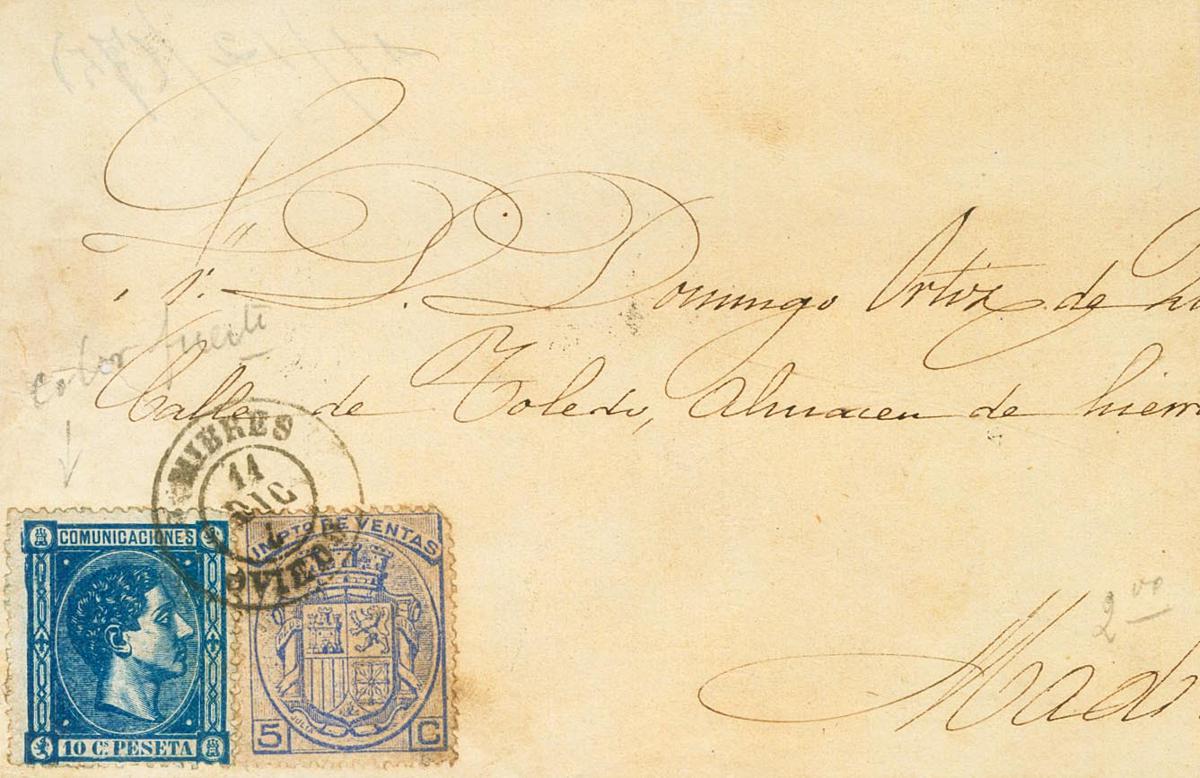 Sr. D. Domingo Ortiz de
Calle de Toledo, Almacen de hierr
color fuerte
MIERES
11
DIC
OVIEDO
COMUNICACIONES
10 Cs. PESETA
IMPTO DE VENTAS
5 C
2 00
Mad